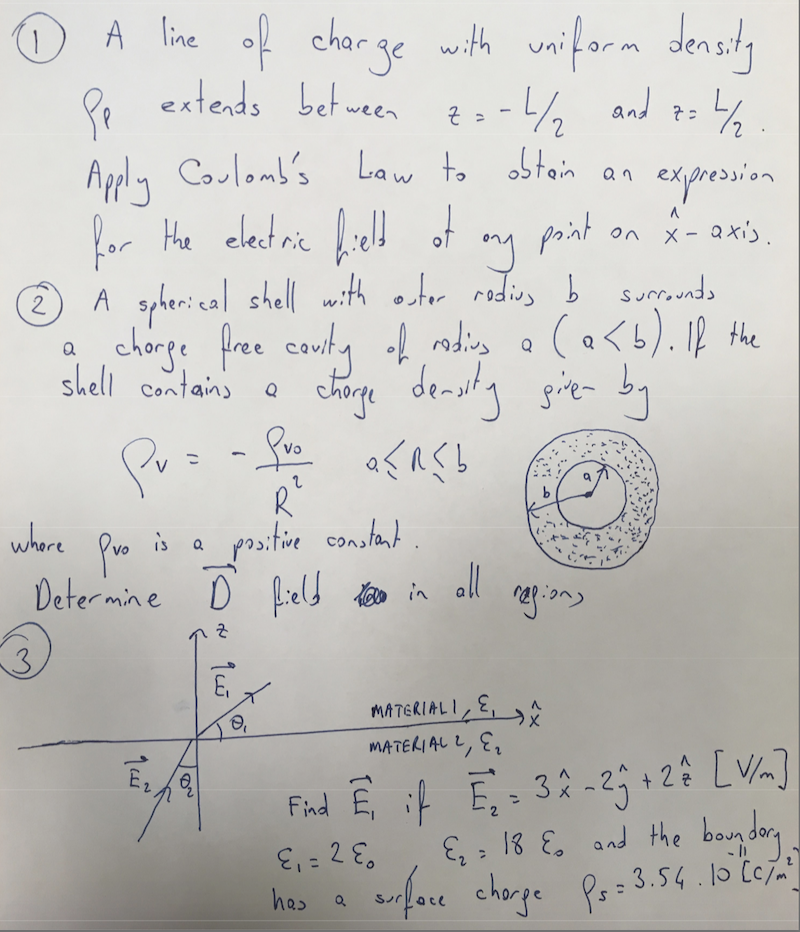 ① A line of charge with uniform density
ρℓ extends between z = -L/2 and z = L/2.
Apply Coulomb's Law to obtain an expression
for the electric field at any point on x̂-axis.
② A spherical shell with outer radius b surrounds
a charge free cavity of radius a (a<b). If the
shell contains a charge density given by
ρv = - ρvo / R² a ≤ R ≤ b
a
b
where ρvo is a positive constant.
Determine D⃗ field in all regions
③
z
E⃗₁
θ₁
MATERIAL 1, ε₁
x̂
MATERIAL 2, ε₂
E⃗₂
θ₂
Find E⃗₁ if E⃗₂ = 3x̂ - 2ŷ + 2ẑ [V/m]
ε₁ = 2 ε₀, ε₂ = 18 ε₀ and the boundary
has a surface charge ρs = 3.54 . 10⁻¹¹ [C/m²]